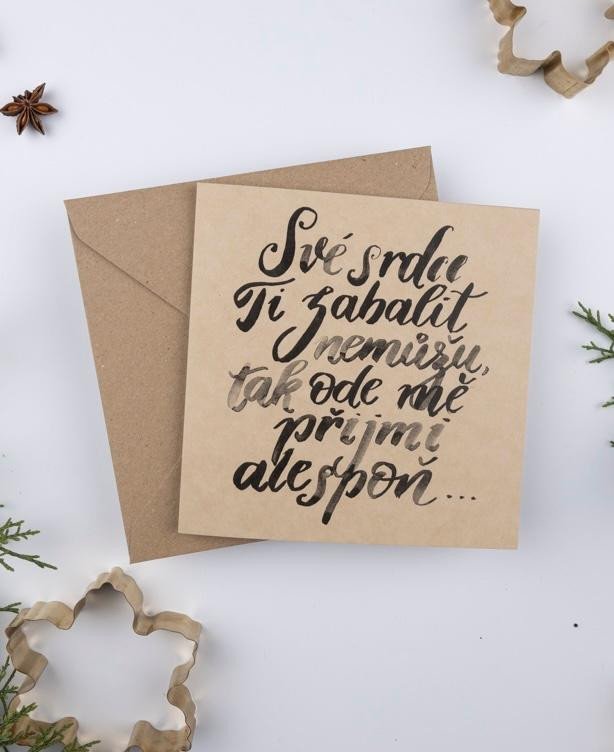 Své srdce
Ti zabalit
nemůžu,
tak ode mě
přijmi
alespoň...